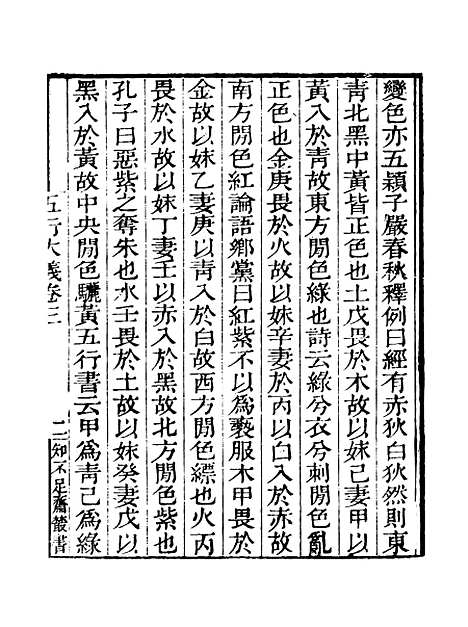 變色亦五穎子嚴春秋釋例曰經有赤狄白狄然則東
青北黑中黃皆正色也土戊畏於木故以妹己妻甲以
黃入於青故東方閒色綠也詩云綠兮衣兮刺閒色亂
正色也金庚畏於火故以妹辛妻於丙以白入於赤故
南方閒色紅論語鄉黨曰紅紫不以為褻服木甲畏於
金故以妹乙妻庚以青入於白故西方閒色縹也火丙
畏於水故以妹丁妻壬以赤入於黑故北方閒色紫也
孔子曰惡紫之奪朱也水壬畏於土故以妹癸妻戊以
黑入於黃故中央閒色驪黃五行書云甲為青己為綠
五行大義卷三
二
知不足齋叢書